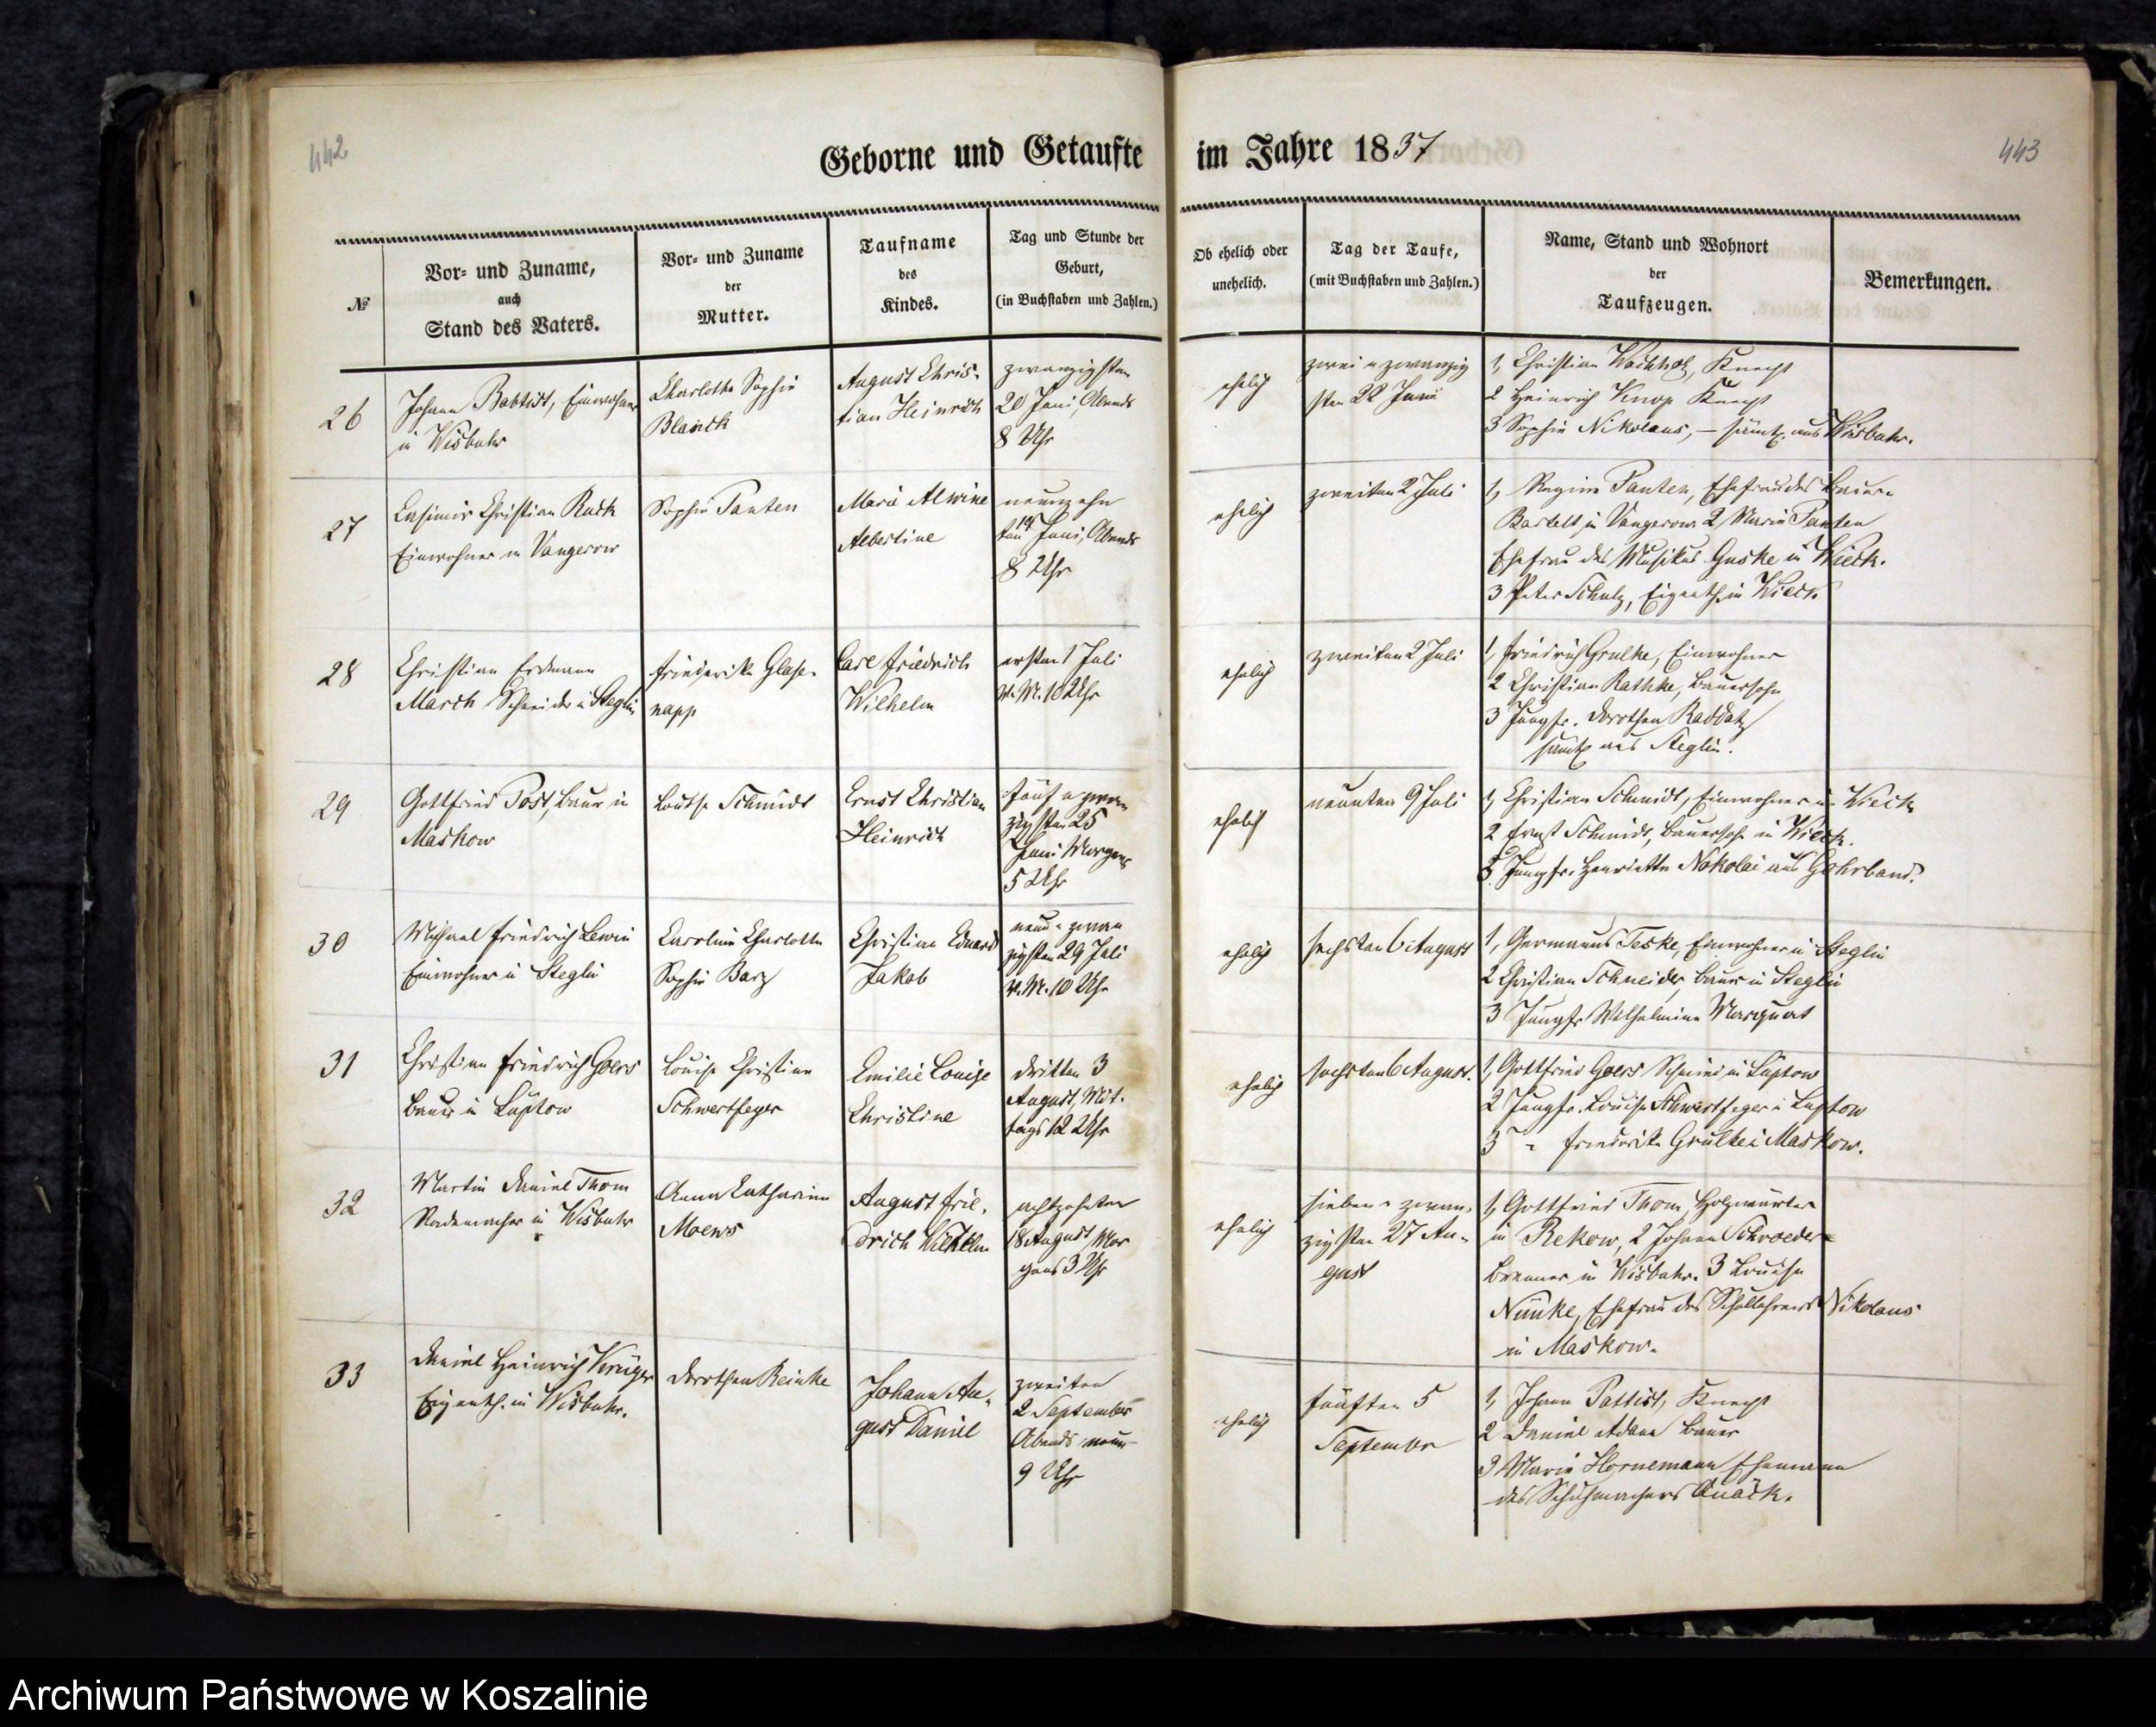 442
Geborne und Getaufte
№
Vor- und Zuname,
auch
Stand des Vaters.
Vor- und Zuname
der
Mutter.
Taufname
des
Kindes.
Tag und Stunde der
Geburt,
(in Buchstaben und Zahlen.)
26
Johann Babtist, Einwohner
in Wisbuhr
Charlotte Sophie
Blanck
August Chris-
tian Heinrich
zwanzigsten
20 Juni, Abends
8 Uhr
27
Casimir Christian Radk
Einwohner in Vangerow
Sophie Panten
Maria Alwine
Albertine
neunzehn
ten 19 Juni, Abends
8 Uhr
28
Christian Erdmann
March Schneider in Steglin
Friederike Glase-
napp
Carl Friedrich
Wilhelm
ersten 1 Juli
V. M. 10 Uhr
29
Gottfried Post, Bauer in
Maskow
Louise Schmidt
Ernst Christian
Heinrich
fünf u zwan
zigsten 25
Juni Morgens
5 Uhr
30
Michael Friedrich Lewin
Einwohner in Steglin
Caroline Charlotte
Sophie Barz
Christian Eduard
Jakob
neun u zwan
zigsten 29 Juli
V. M. 10 Uhr
31
Christian Friedrich Goers
Bauer in Lüptow
Louise Christine
Schwertfeger
Emilie Louise
Christine
dritten 3
August, Mit-
tags 12 Uhr
32
Martin Daniel Thom
Rademacher in Wisbuhr
Anna Catharina
Moews
August Frie-
drich Wilhelm
achtzehnten
18 August, Mor
gens 3 Uhr
33
Daniel Heinrich Krüger
Eigenth. in Wisbuhr.
Dorothea Reinke
Johann Au-
gust Daniel
zweiten
2 September
Abends neun
9 Uhr
443
im Jahre 1837
Ob ehelich oder
unehelich.
Tag der Taufe,
(mit Buchstaben und Zahlen.)
Name, Stand und Wohnort
der
Taufzeugen.
Bemerkungen.
ehelich
zwei u zwanzig
sten 22 Juni
1, Christian Wachholz, Knecht
2 Heinrich Knop Knecht
3 Sophie Nikolaus, – sämtl. aus Wisbuhr.
ehelich
zweiten 2 Juli
1, Regine Panten, Ehefrau des Bauern
Bartelt in Vangerow 2, Marie Panten
Ehefrau des Musikus Guske in Wieck.
3 Peter Schulz, Eigenth. in Wieck
ehelich
zweiten 2 Juli
1, Friedrich Grulke, Einwohner
2 Christian Rathke, Bauersohn
3 Jungfr. Dorothea Raddatz
sämtl. aus Steglin.
ehelich
neunten 9 Juli
1, Christian Schmidt, Einwohner in Wieck
2 Ernst Schmidt, Bauersohn in Wieck.
3 Jungfr. Henriette Nokolai aus Gohrband.
ehelich
sechsten 6 August
1, Germanus Teske, Einwohner in Steglin
2 Christian Schneider, Bauer in Steglin
3 Jungfr Wilhelmine Marquat
ehelich
sechsten 6 August.
1, Gottfried Goers Schmied in Lüptow
2 Jungfr. Louise Schwertfeger in Luptow
3 " – Friederike Grulke in Maskow.
ehelich
sieben u zwan-
zigsten 27 Au-
gust
1, Gottfried Thom, Holzwärter
in Rekow, 2 Johann Schroeder
Brenner in Wisbuhr. 3 Louise
Nünke, Ehefrau des Schullehrers Nikolaus
in Maskow.
ehelich
fünften 5
September
1, Johann Pattist, Knecht
2 Daniel Adam Bauer
3 Marie Hornemann Ehemann
des Schuhmachers Quack.
Archiwum Państwowe w Koszalinie